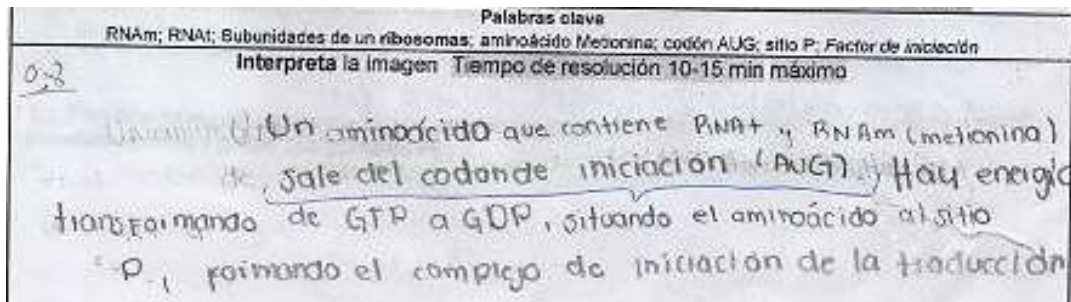 Palabras clave
RNAm; RNAt; Subunidades de un ribosomas; aminoácido Metionina; codón AUG; sitio P; Factor de iniciación
Interpreta la imagen Tiempo de resolución 10-15 min máximo
0.8
Un aminoácido que contiene RNAt y RNAm (metionina)
de, sale del codon de iniciación (AUG), Hay energía
transformando de GTP a GDP, situando el aminoácido al sitio
P, formando el complejo de iniciación de la traducción